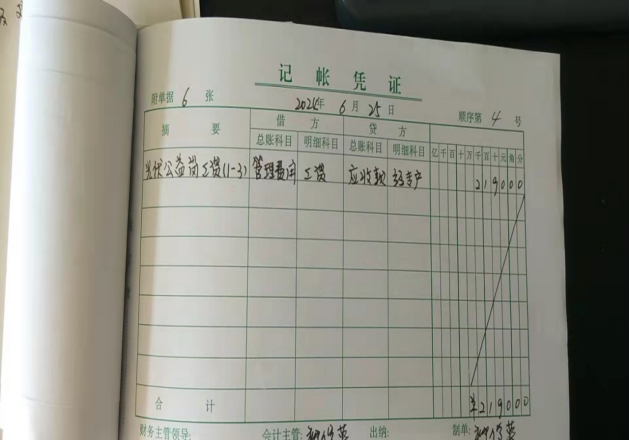 记帐凭证
附单据 6 张 2024年 6 月 25 日 顺序第 4 号
摘要 借方 贷方 亿千百十万千百十元角分
总账科目 明细科目 总账科目 明细科目
光伏公益岗工资(1-3) 管理费用 工资 应收款 219000
合计 ¥219000
财务主管领导: 会计主管: 出纳: 制单: